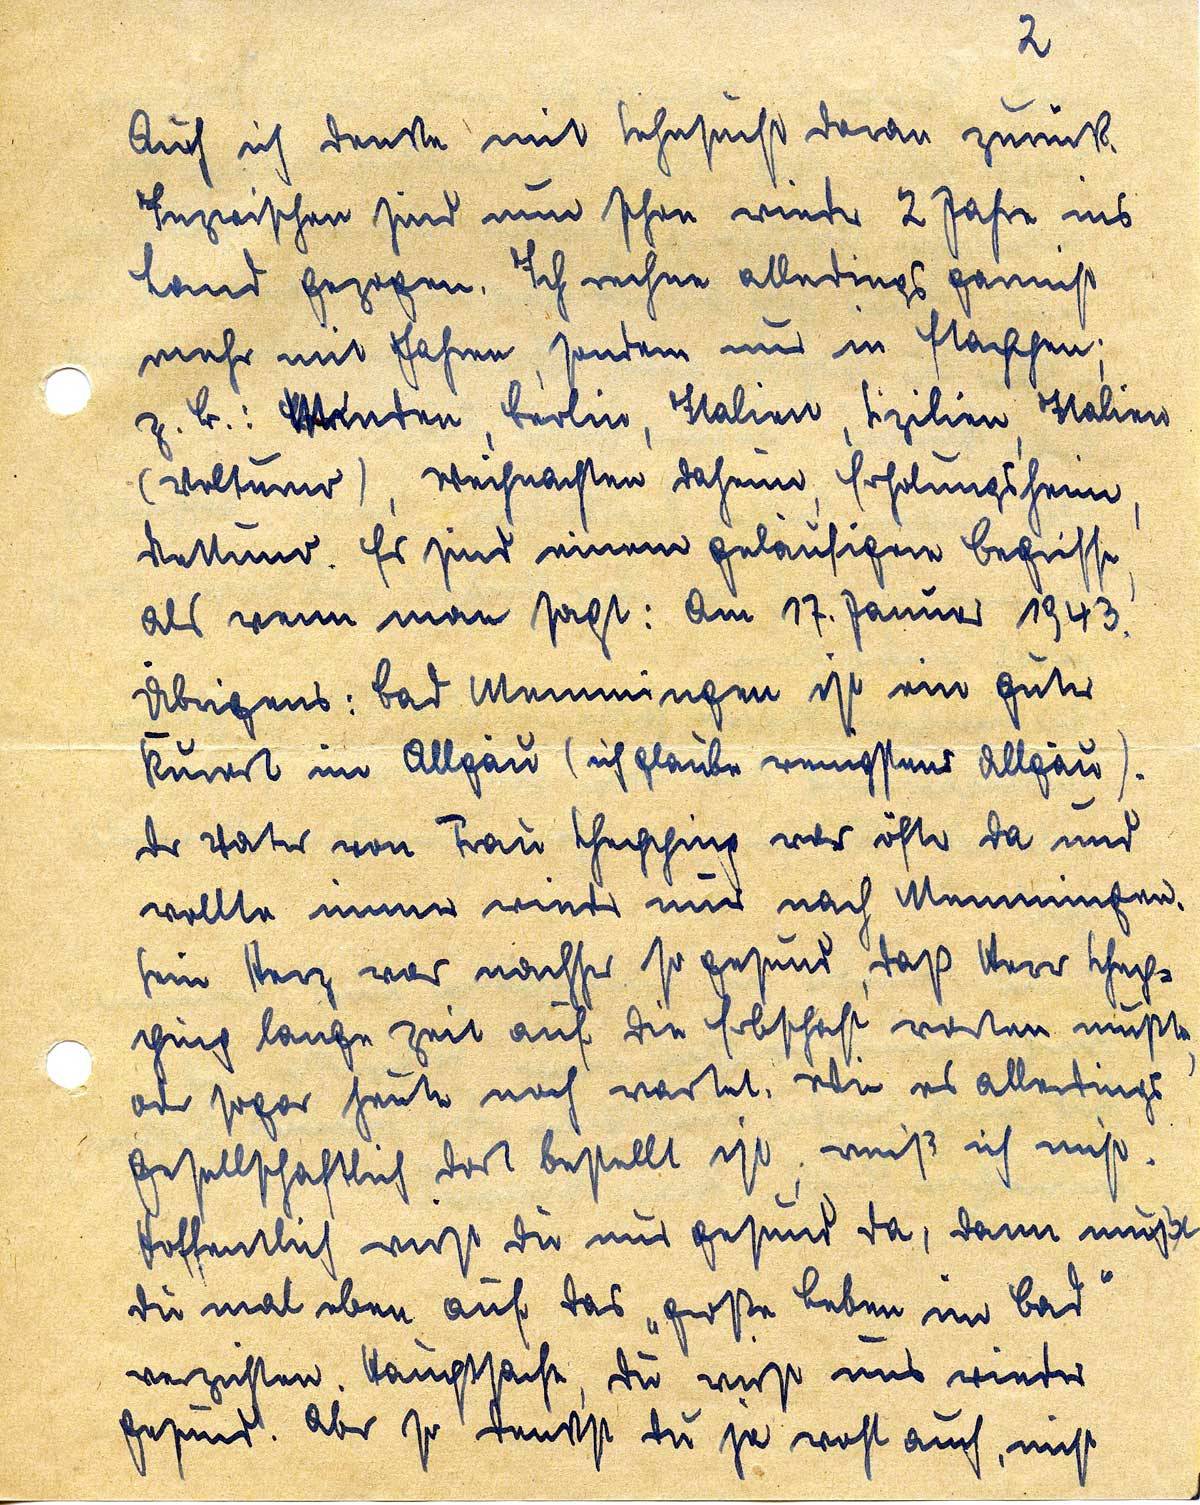 2
Auch ich denke mit Sehnsucht daran zurück.
Inzwischen sind nun schon wieder 2 Jahre ins
Land gezogen. Ich rechne allerdings garnicht
mehr mit Jahren, sondern nur in Etappen;
z. B.: Minden, Berlin, Italien, Sizilien, Italien
(Volturno), Weihnachten daheim, Erholungsheim,
Nettuno. Es sind einem geläufigere Begriffe,
als wenn man sagt: Am 17. Januar 1943.
Übrigens: Bad Memmingen ist ein guter
Kurort im Allgäu (ich glaube wenigstens Allgäu).
Der Vater von Frau war öfter da und
wollte immer wieder nur nach Memmingen.
Sein Herz war nachher so gesund, daß Herr
lange Zeit auf die Erbschaft warten mußte,
oder sogar heute noch wartet. Wie es allerdings
gesellschaftlich dort bestellt ist, weiß ich nicht.
Hoffentlich wirst Du nur gesund da, dann mußt
Du mal eben auf das „große Leben im Bad"
verzichten. Hauptsache, Du wirst uns wieder
gesund. Aber so denkst Du ja wohl auch, nicht